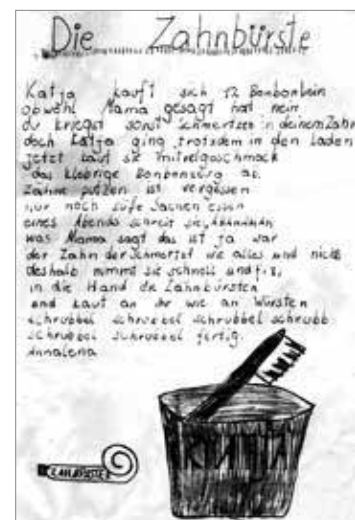 Die Zahnbürste
Katja kauft sich 12 Bonbonlein
obwohl Mama gesagt hat nein
du kriegst sonst schmertzen in deinem Zahn
doch Katja ging trotzdem in den Laden
jetzt kaut sie mit
das klebrige Bonbonszeug ab.
Zähne putzen ist vergessen
nur noch süße Sachen essen
eines Abends schreit sie, AAAAAAAh
was Mama sagt das ist ja war
der Zahn der Schmertzt wie alles und nichts
deshalb nimmt sie schnell und fix,
in die Hand die Zahnbürsten
und kaut an ihr wie an Würsten
schrubbel schrubbel schrubbel schrubb
schrubbel schrubbel fertig.
Annalena
Katja
ZAHNPASTE